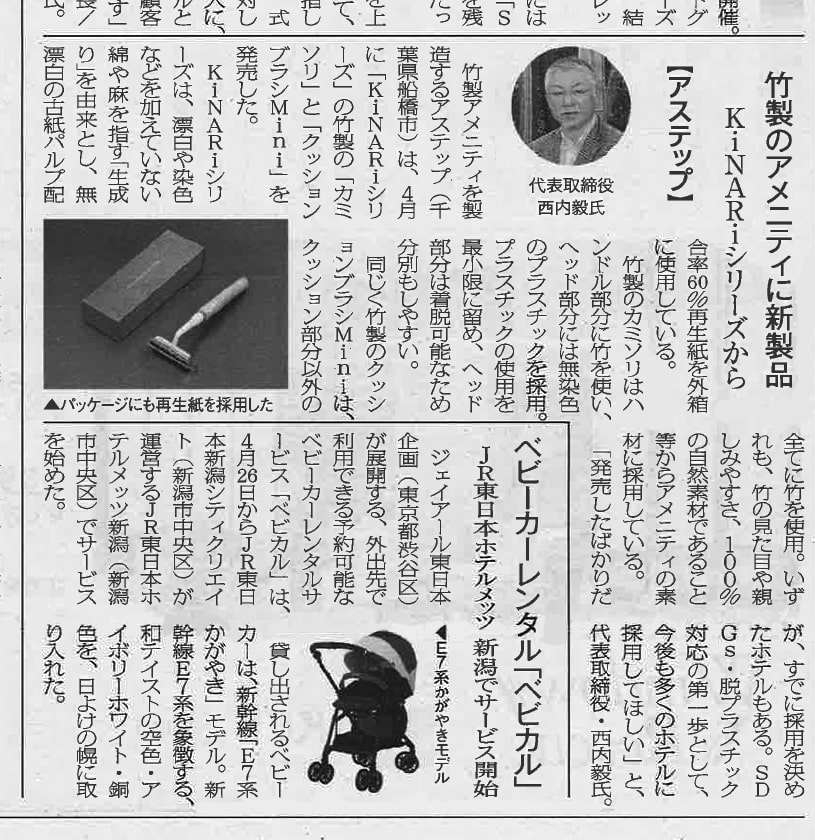 開催。
には
「S
を残
たっ
を上
て、
指し
式
対し
ルと
顧客
竹製のアメニティに新製品
KiNARiシリーズから
【アステップ】
代表取締役
西内毅氏
竹製アメニティを製
造するアステップ（千
葉県船橋市）は、4月
に「KiNARiシリ
ーズ」の竹製の「カミ
ソリ」と「クッション
ブラシMini」を
発売した。
KiNARiシリ
ーズは、漂白や染色
などを加えていない
綿や麻を指す「生成
り」を由来とし、無
漂白の古紙パルプ配
合率60％再生紙を外箱
に使用している。
竹製のカミソリはハ
ンドル部分に竹を使い、
ヘッド部分には無染色
のプラスチックを採用。
プラスチックの使用を
最小限に留め、ヘッド
部分は着脱可能なため
分別もしやすい。
同じく竹製のクッシ
ョンブラシMiniは、
クッション部分以外の
▲パッケージにも再生紙を採用した
全てに竹を使用。いず
れも、竹の見た目や親
しみやすさ、100％
の自然素材であること
等からアメニティの素
材に採用している。
「発売したばかりだ
が、すでに採用を決め
たホテルもある。SD
Gs・脱プラスチック
対応の第一歩として、
今後も多くのホテルに
採用してほしい」と、
代表取締役・西内毅氏。
ベビーカーレンタル「ベビカル」
JR東日本ホテルメッツ 新潟でサービス開始
ジェイアール東日本
企画（東京都渋谷区）
が展開する、外出先で
利用できる予約可能な
ベビーカーレンタルサ
ービス「ベビカル」は、
4月26日からJR東日
本新潟シティクリエイ
ト（新潟市中央区）が
運営するJR東日本ホ
テルメッツ新潟（新潟
市中央区）でサービス
を始めた。
◀E7系かがやきモデル
貸し出されるベビー
カーは、新幹線「E7系
かがやき」モデル。新
幹線E7系を象徴する、
和テイストの空色・ア
イボリーホワイト・銅
色を、日よけの幌に取
り入れた。